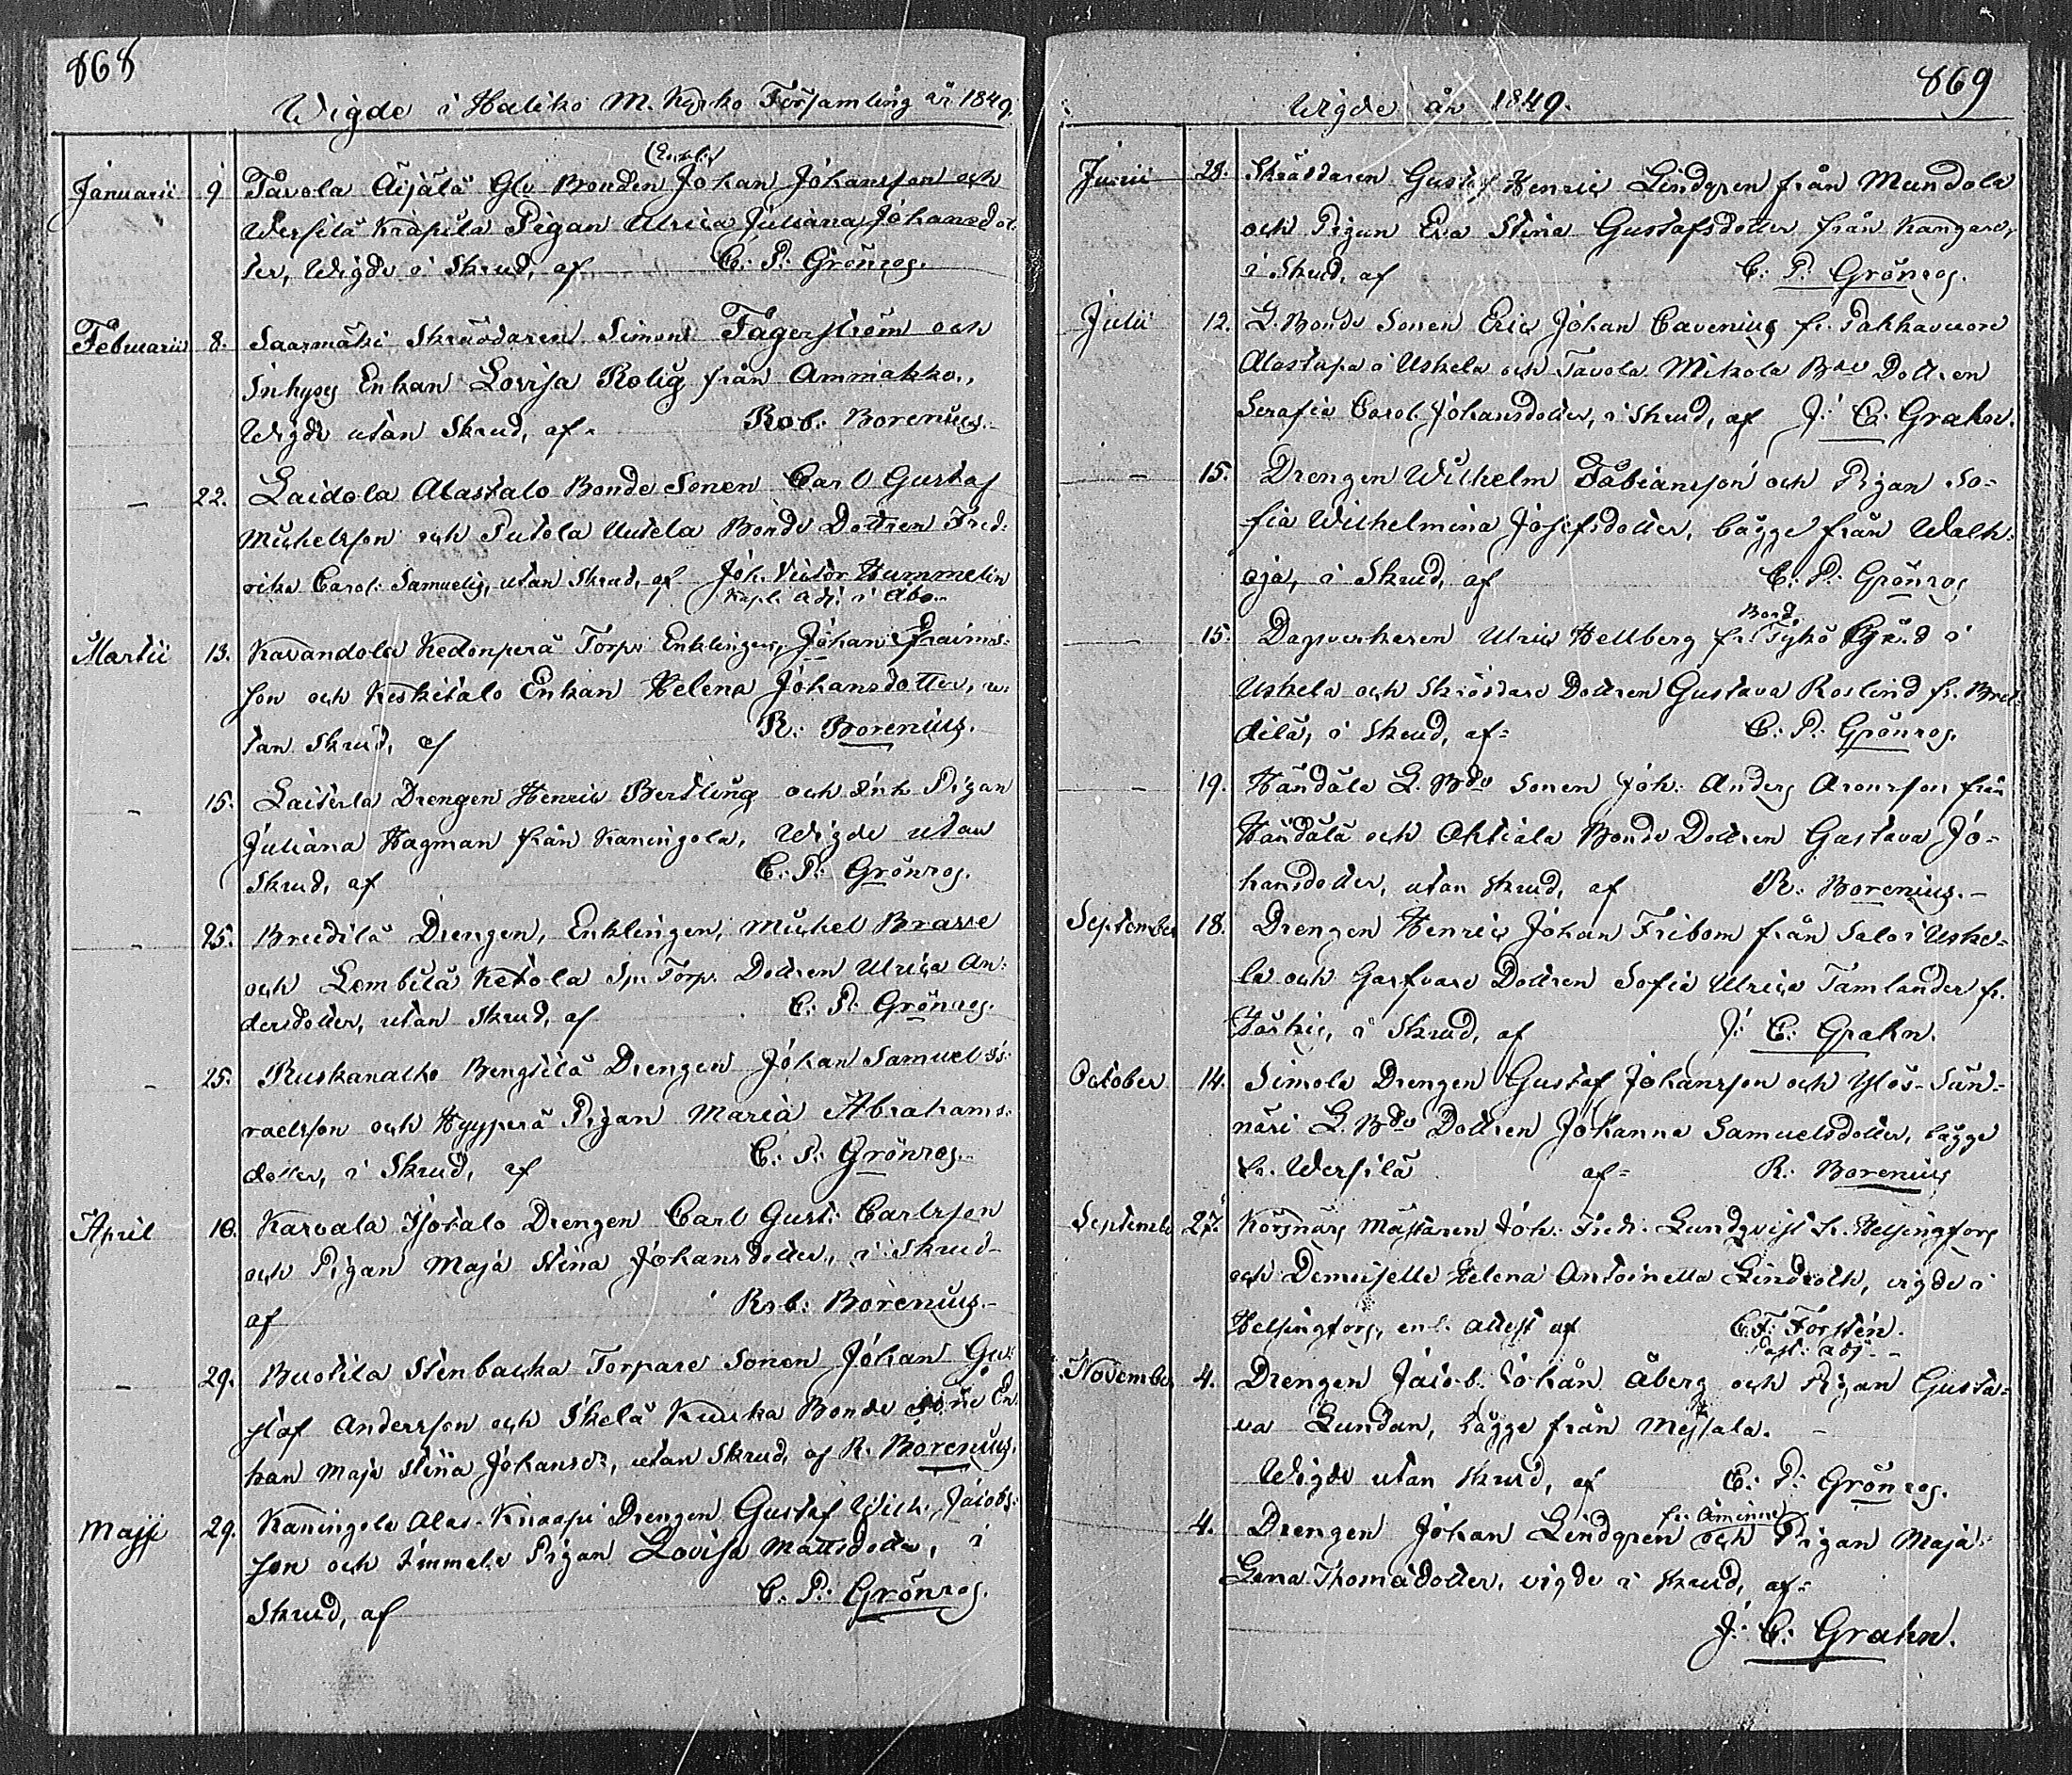 868
Wigde i Haliko M. Kyrko Församling år 1849.
Januarii 9 Tavola Äijälä Glo Bonden (Enkl:) Johan Johansson och
Wersilä Krapila Pigan Ulrica Juliana Johansdot
ter, Wigde i Skrud, af C: P: Grönros.
Februarii 8. Saarmäki Skräddaren Simon Fagerström och
Inhyses Enkan Lovisa Rolig från Ammakko,
Wigde utan Skrud, af Rob: Borenius.
— 22. Laidola Alastalo Bonde Sonen Carl Gustaf
Michelsson och Putola Uutela Bonde Dottren Fred:
rika Carol: Samuelis, utan Skrud, af Joh. Victor Hummelin
Kapl. Adj. i Åbo.
Martii 13. Kavandola Kedonperä Torp: Enklingen, Johan Efraims:
son och Keskitalo Enkan Helena Johansdotter, u:
tan Skrud, af R: Borenius.
— 15. Laiterla Drengen Henric Bertling och Inh. Pigan
Juliana Hagman från Kaningola, Wigde utan
Skrud, af C: P: Grönros.
— 25. Bredilä Drengen, Enklingen, Michel Brasse
och Lembilä Ketola Torp: Dottren Ulrica An:
dersdotter, utan Skrud, af C: P: Grönros.
— 25. Ruskanalho Bengtilä Drengen Johan Samuel Is:
raelsson och Hyyperä Pigan Maria Abrahams:
dotter, i Skrud, af C: P: Grönros.
April 10. Karvala Isotalo Drengen Carl Gust: Carlsson
och Pigan Maja Stina Johansdotter, i Skrud
af Rob: Borenius.
— 29. Buotila Stenbacka Torpare Sonen Johan Gu:
staf Andersson och Skelä Kuuka Bonde En
kan Maja Stina Johansd:r, utan Skrud, af R. Borenius.
Maji 29. Kaningola Alas-Knaapi Drengen Gustaf Wilh: Jacobs:
son och Immela Pigan Lovisa Mattsdotter, i
Skrud, af C: P: Grönros.
869
Wigde år 1849.
Junii 28. Skräddaren Gustaf Henric Lindgren från Mundola
och Pigan Eva Stina Gustafsdotter från Kangare,
i Skrud, af C: P: Grönros.
Julii 12. L. Bonde Sonen Eric Johan Cavenius fr. Pakkavuore
Alastalo i Uskela och Tavola Mikola Bde Dottren
Serafia Carol. Johansdotter, i Skrud, af J: C: Grahn.
— 15. Drengen Wilhelm Fabiansson och Pigan So-
fia Wilhelmina Josefsdotter, bägge från Walk:
oja, i Skrud, af C: P: Grönros
— 15. Dagsverkaren Ulric Hellberg fr. Tykö Bond Gård i
Uskela och Skräddare Dottren Gustava Roslind fr. Bre
dilä, i Skrud, af C: P: Grönros.
— 19. Händälä L. Bde Sonen Joh: Anders Aronsson från
Händälä och Oktiala Bonde Dottren Gustava Jo-
hansdotter, utan Skrud, af R: Borenius.
September 18. Drengen Henric Johan Fribom från Salo i Uske-
la och Garfvare Dottren Sofia Ulrica Tamlander fr.
i Skrud, af J: C: Grahn.
October 14. Simola Drengen Gustaf Johansson och Ylös-Sän-
näri L. Bde Dottren Johanna Samuelsdotter, bägge
fr. Wersilä af R: Borenius
September 27. Körsnärs Mästaren Joh: Fredr: Lundqvist fr. Helsingfors
och Demoiselle Helena Antoinetta Lindroth, vigde i
Helsingfors, enl. attest af C. F. Forstén.
Past: adj.
November 4. Drengen Jacob Johan Åberg och Pigan Gusta-
va Lundan, bägge från Messala.
Wigde utan Skrud, af C: P: Grönros.
4. Drengen Johan Lindgren fr. Åminne och Pigan Maja
Lena Thomädotter, vigde i Skrud, af
J: C: Grahn.